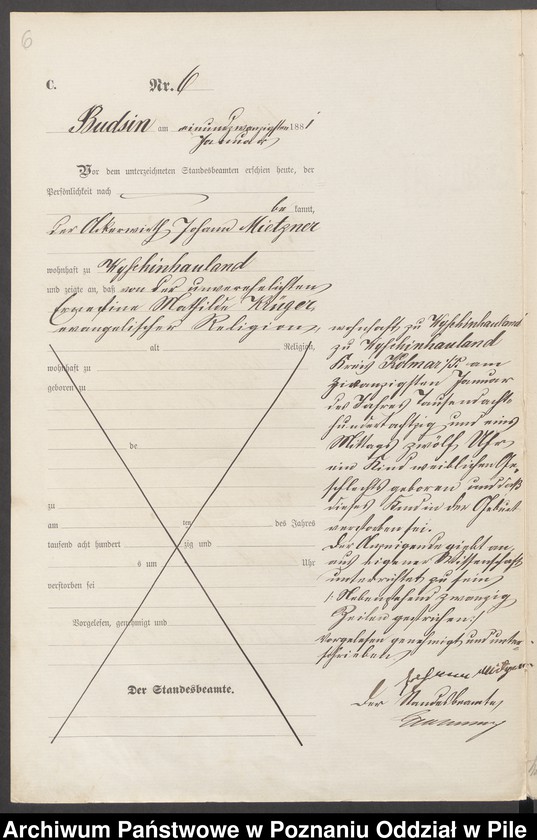 6
C.
Nr. 6
Budsin am einundzwanzigsten 1881
Januar
Vor dem unterzeichneten Standesbeamten erschien heute, der
Persönlichkeit nach
be kannt,
der Ackerwirth Johann Mietzner
wohnhaft zu Wyschinhauland
und zeigte an, daß von der unverehelichten
Mathilde Krüger,
evangelischer Religion,
alt Religion,
wohnhaft zu
geboren zu
de
zu
am ten des Jahres
tausend acht hundert zig und
s um Uhr
verstorben sei
Vorgelesen, genehmigt und
Der Standesbeamte.
wohnhaft zu Wyschinhauland
zu Wyschinhauland
Kreis Kolmar i/P. am
zwanzigsten Januar
des Jahres tausendacht
hundertachtzig und eins
Mittags zwölf Uhr
ein Kind weiblichen Ge-
schlechts geboren und daß
dieses Kind in der Geburt
verstorben sei.
Der Anzeigende giebt an,
aus eigener Wissenschaft
unterrichtet zu sein
/: Nebenstehend zwanzig
Zeilen gestrichen :/
Vorgelesen genehmigt und unter-
schrieben
Johann Mietzner
Der Standesbeamte
Archiwum Państwowe w Poznaniu Oddział w Pile